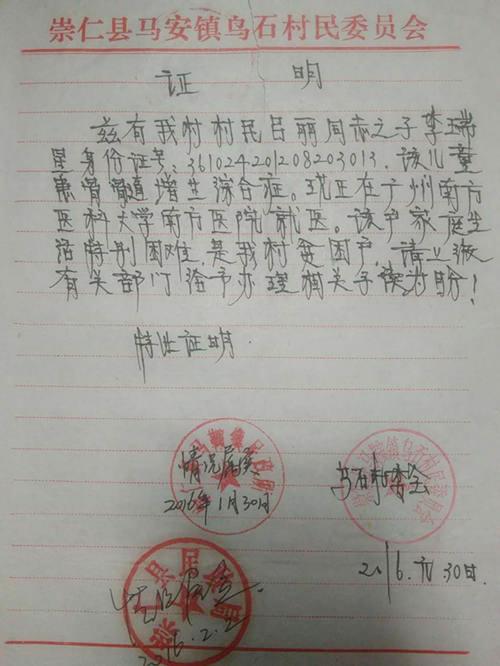 崇仁县马安镇乌石村民委员会
证 明
兹有我村村民吕丽同志之子李瑞
星身份证号:361024201208203013.该儿童
患骨髓增生综合症。现正在广州南方
医科大学南方医院就医。该户家庭生
活特别困难,是我村贫困户,请上级
有关部门给予办理相关手续为盼!
特此证明.
情况属实
2016年1月30日
乌石村委会
2016.元.30日.
2016.2.2